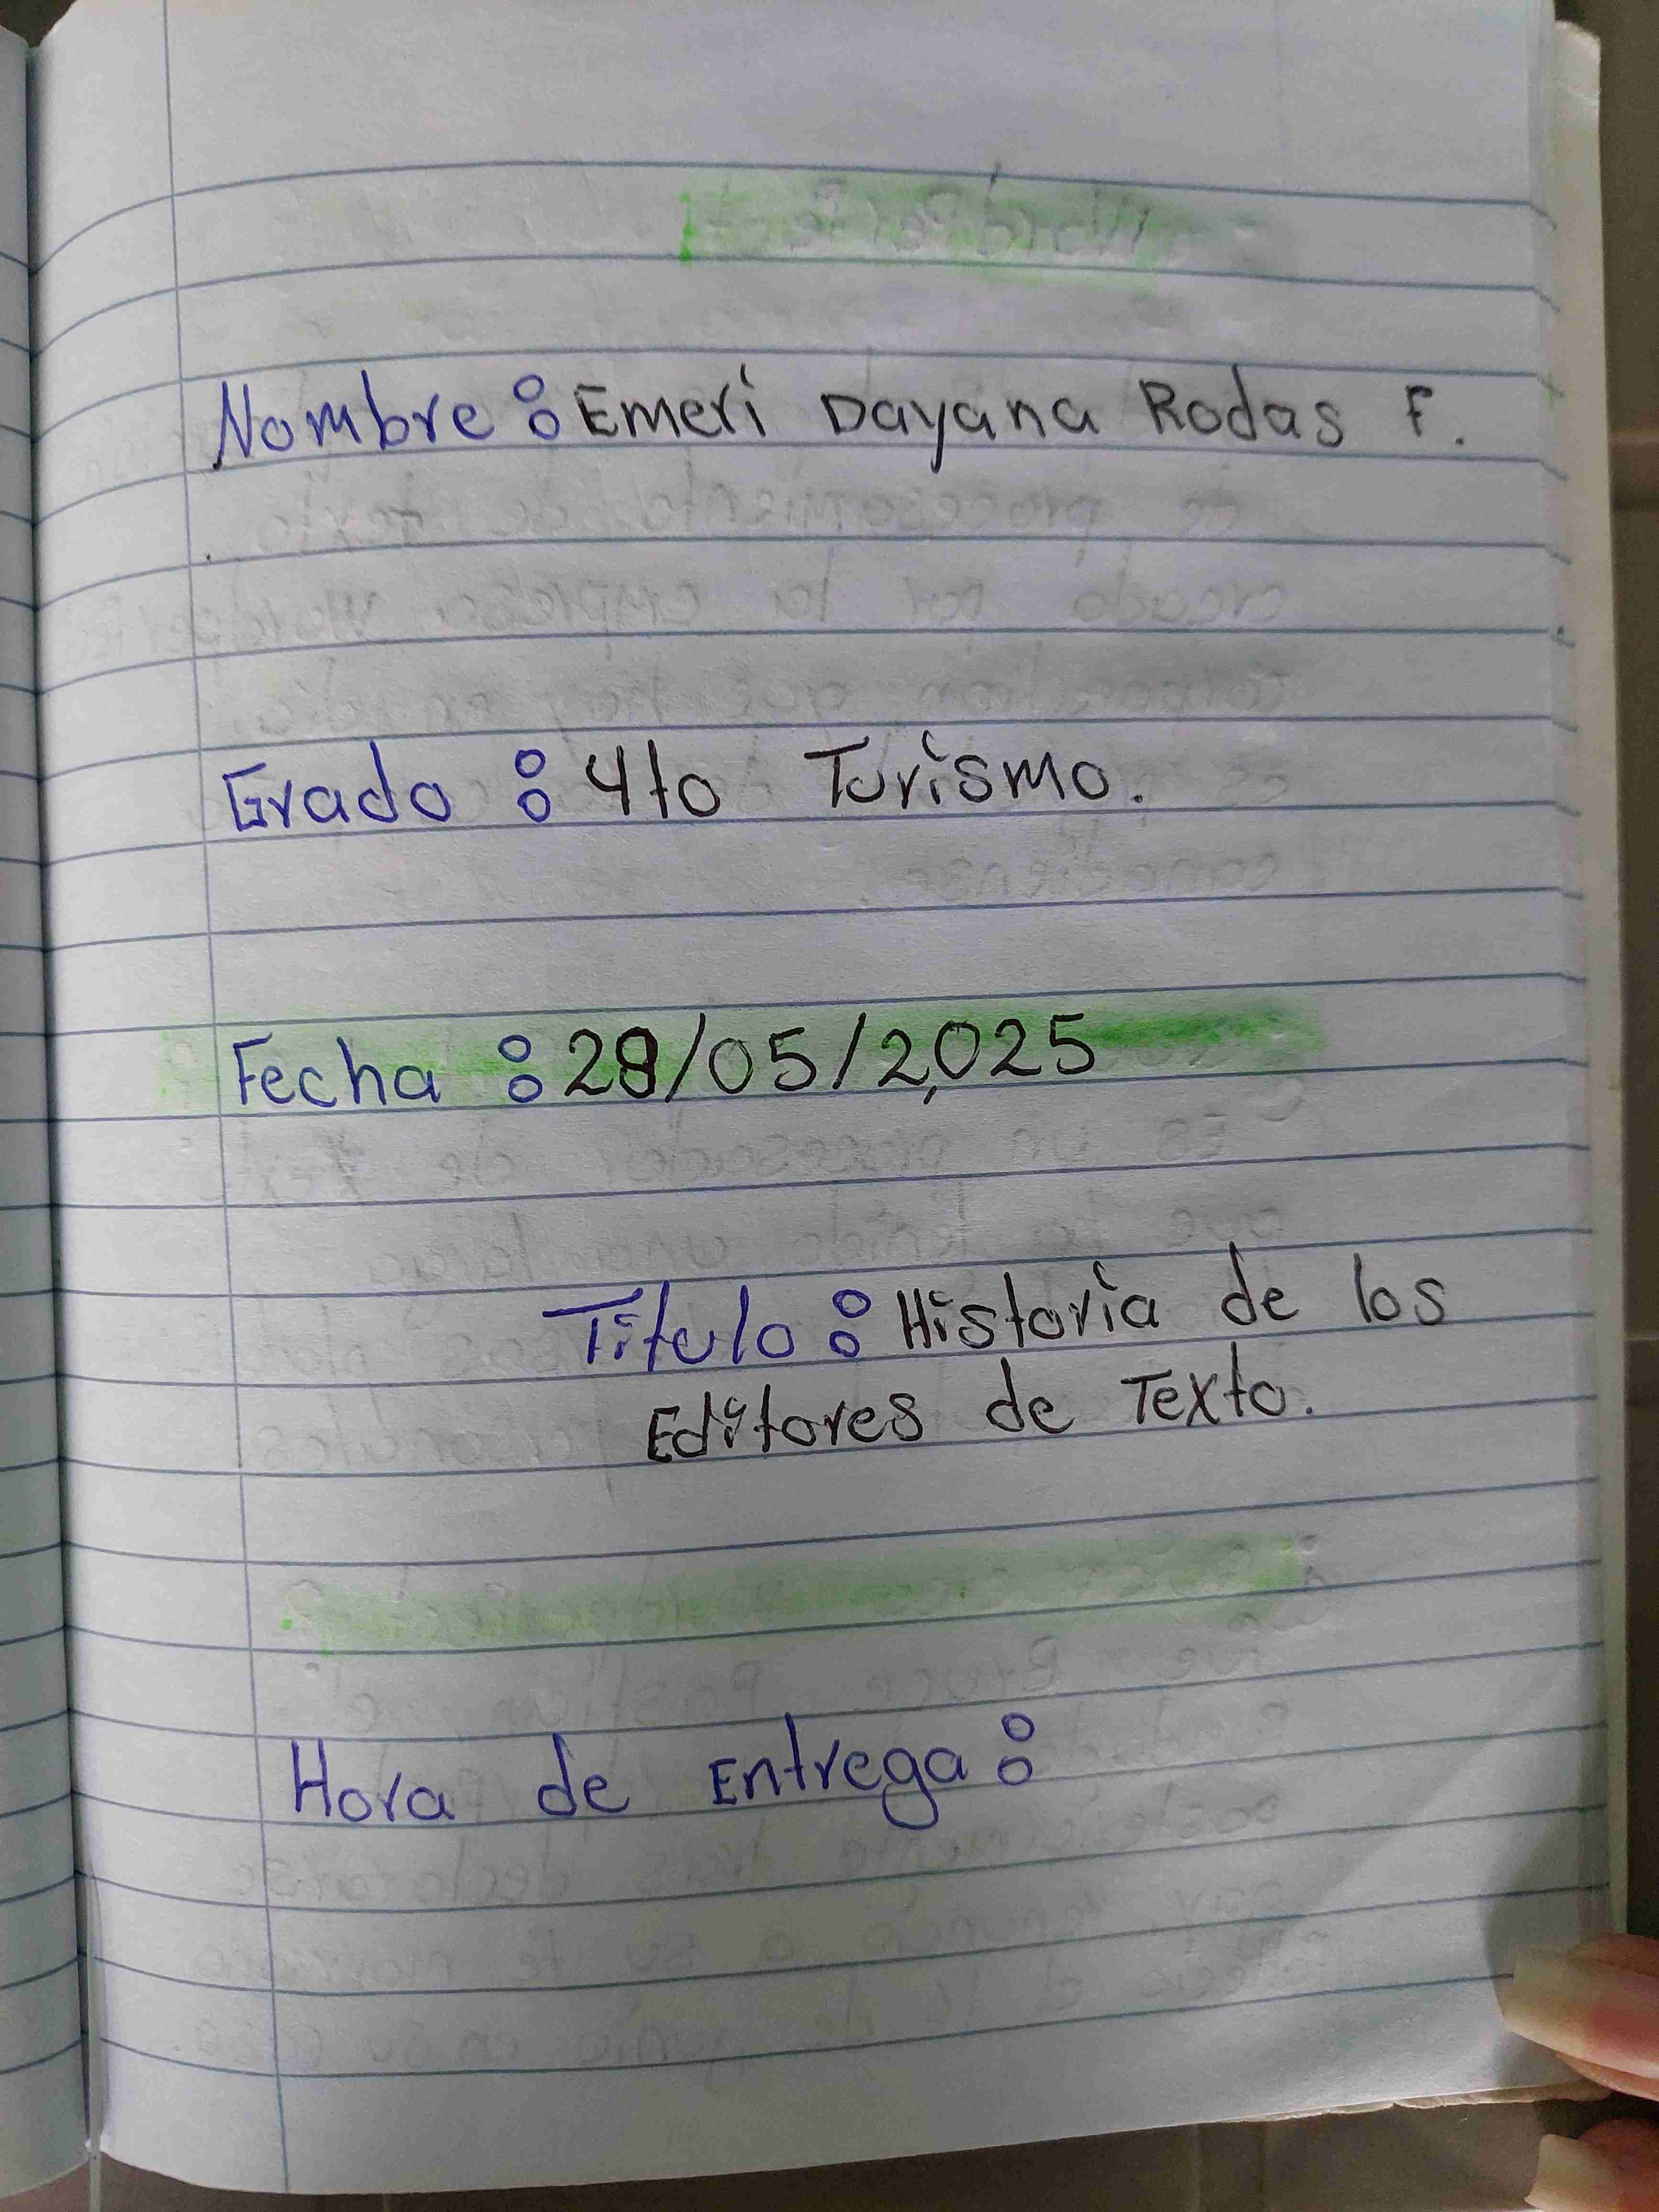 Nombre : Emeri Dayana Rodas F.
Grado : 4to Turismo.
Fecha : 28/05/2,025
Titulo : Historia de los
Editores de Texto.
Hora de Entrega :